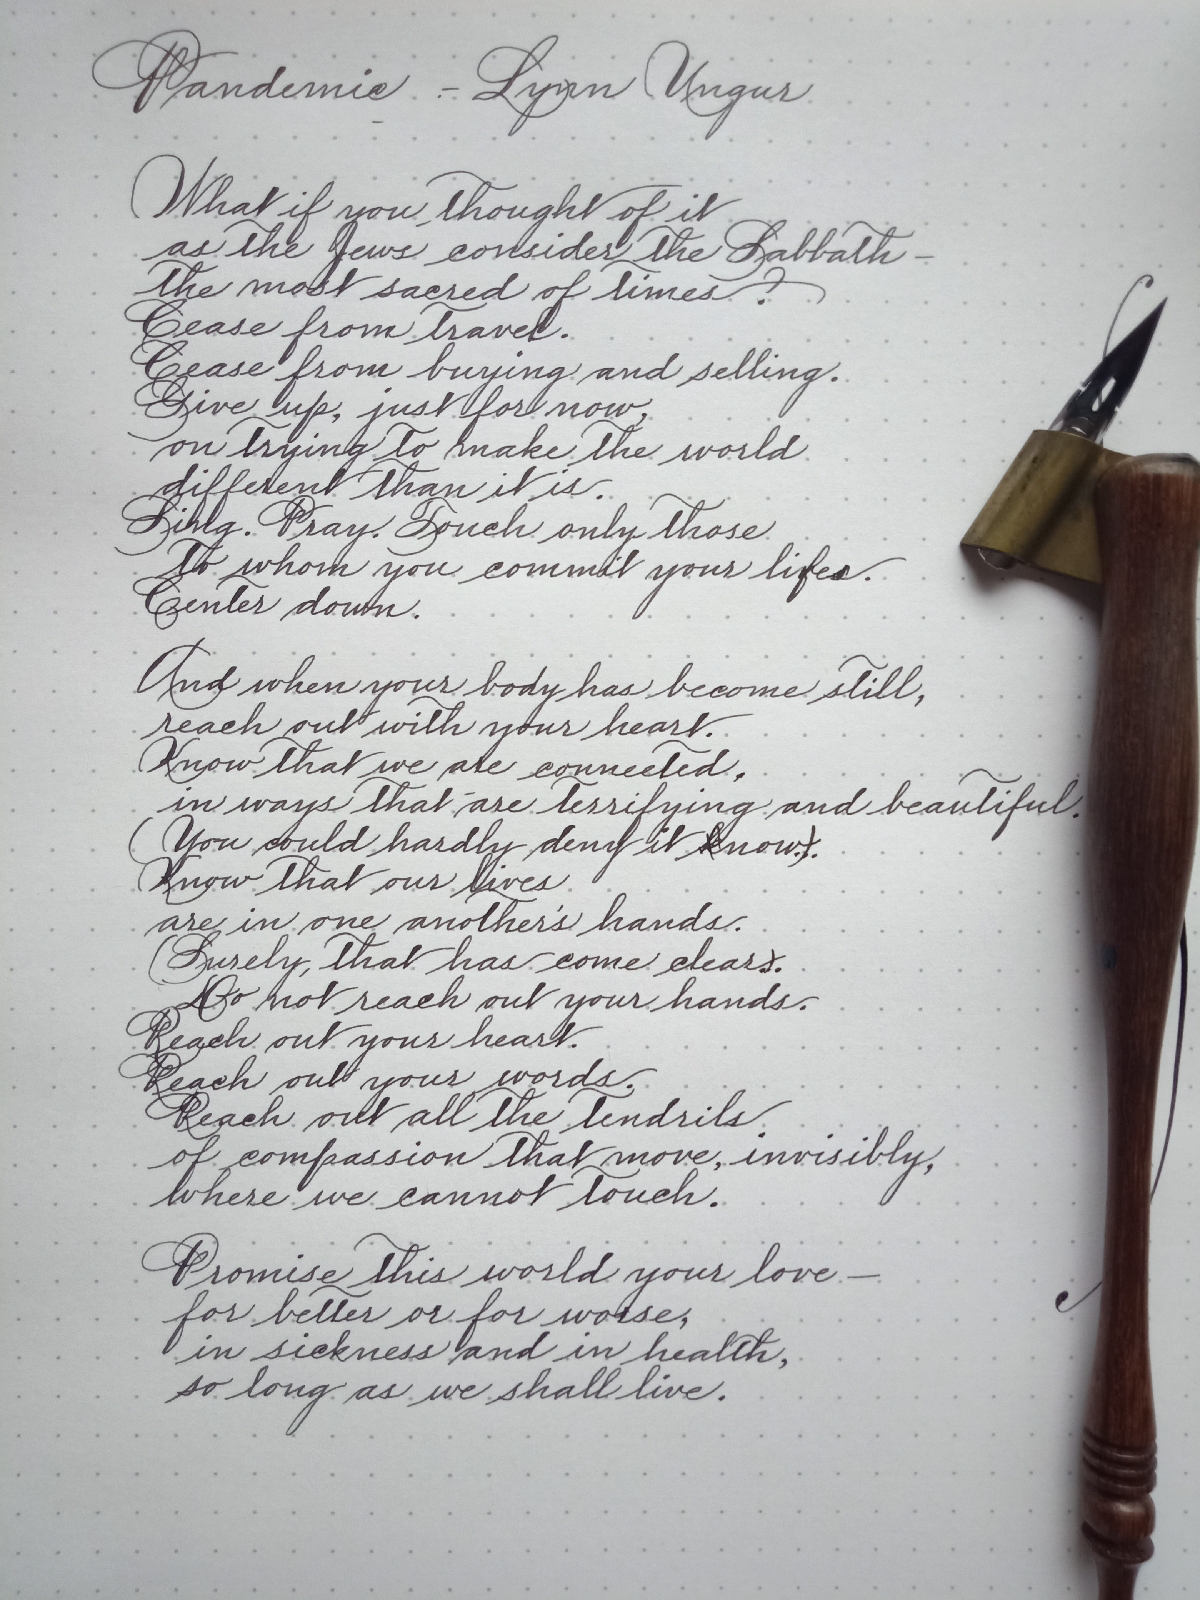 Pandemic - Lynn Ungur
What if you thought of it
as the Jews consider the Sabbath -
the most sacred of times?
Cease from travel.
Cease from buying and selling.
Give up, just for now,
on trying to make the world
different than it is.
Sing. Pray. Touch only those
to whom you commit your lifes.
Center down.
And when your body has become still,
reach out with your heart.
Know that we are connected,
in ways that are terrifying and beautiful.
(You could hardly deny it know.).
Know that our lives
are in one another's hands.
(Surely, that has come clear).
Do not reach out your hands.
Reach out your heart.
Reach out your words.
Reach out all the tendrils
of compassion that move, invisibly,
where we cannot touch.
Promise this world your love -
for better or for worse,
in sickness and in health,
so long as we shall live.